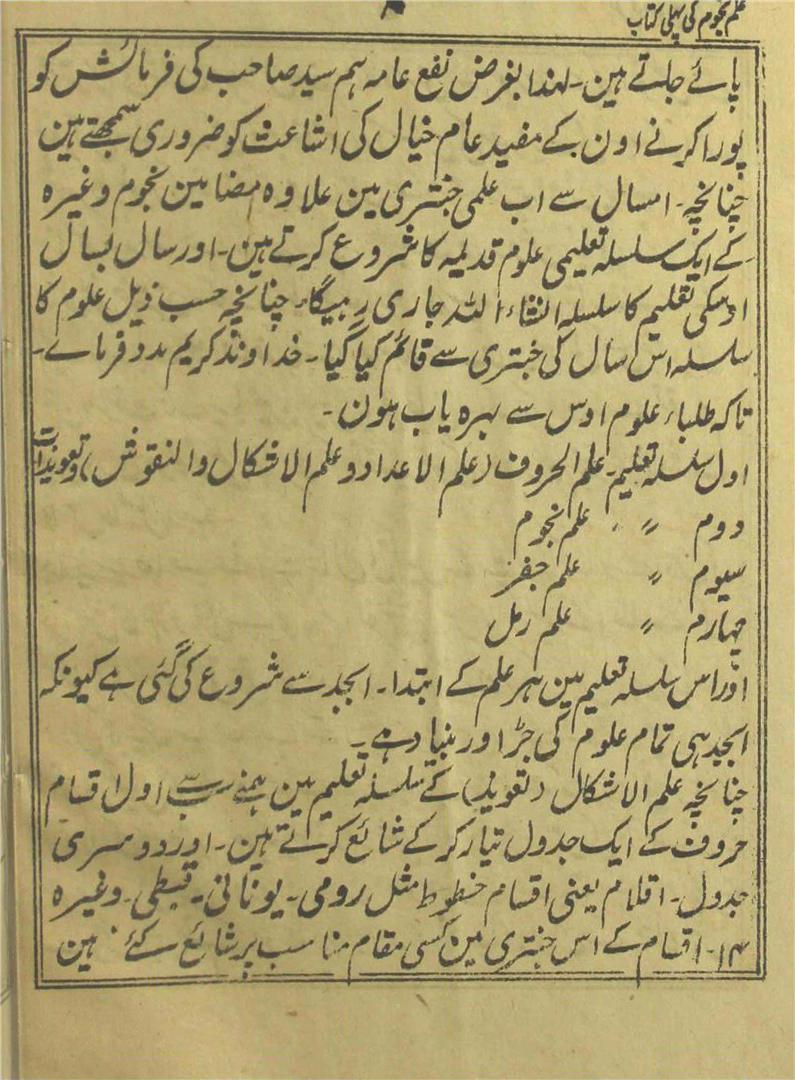 علم نجوم کی پہلی کتاب
پائے جاتے ہین۔ لہذا بغرض نفع عامہ ہم سید صاحب کی فرمائش کو
پورا کرنے اون کے مفید عام خیال کی اشاعت کو ضروری سمجھتے ہین
چنانچہ۔ امسال سے اب علمی جنتری مین علاوہ مضامین نجوم وغیرہ
کے ایک سلسلہ تعلیمی علوم قدیمہ کا شروع کرتے ہین۔ اور سال بسال
اوسکی تعلیم کا سلسلہ انشاء اللہ جاری رہیگا۔ چنانچہ حسب ذیل علوم کا
سلسلہ اس سال کی جنتری سے قائم کیا گیا۔ خداوند کریم مدد فرمائے۔
تاکہ طلباء علوم اوس سے بہرہ یاب ہون۔
اول سلسلہ تعلیم۔ علم الحروف (علم الاعداد و علم الاشکال والنقوش) و تعویذات
دوم 〃 علم نجوم
سیوم 〃 علم جفر
چہارم 〃 علم رمل
اور اس سلسلہ تعلیم مین ہر علم کے ابتدا۔ ابجد سے شروع کی گئی ہے کیونکہ
ابجد ہی تمام علوم کی جڑ اور بنیاد ہے۔
چنانچہ علم الاشکال (تعویذ) کے سلسلہ تعلیم مین ہمنے سب سے اول اقسام
حروف کے ایک جدول تیار کر کے شائع کرتے ہین۔ اور دوسری
جدول۔ اقلام یعنی اقسام خطوط مثل رومی۔ یونانی۔ قبطی۔ وغیرہ
۱۴۔ اقسام کے اس جنتری مین کسی مقام مناسب پر شائع کئے ہین